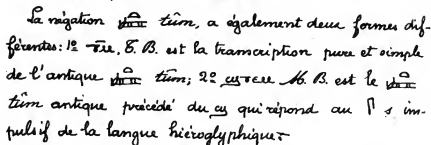 La négation tûm, a également deux formes dif-
férentes: 1º T. B. est la transcription pure et simple
de l'antique tûm; 2º M. B. est le
tûm antique précédé du ϣ qui répond au s im-
pulsif de la langue hiéroglyphique.